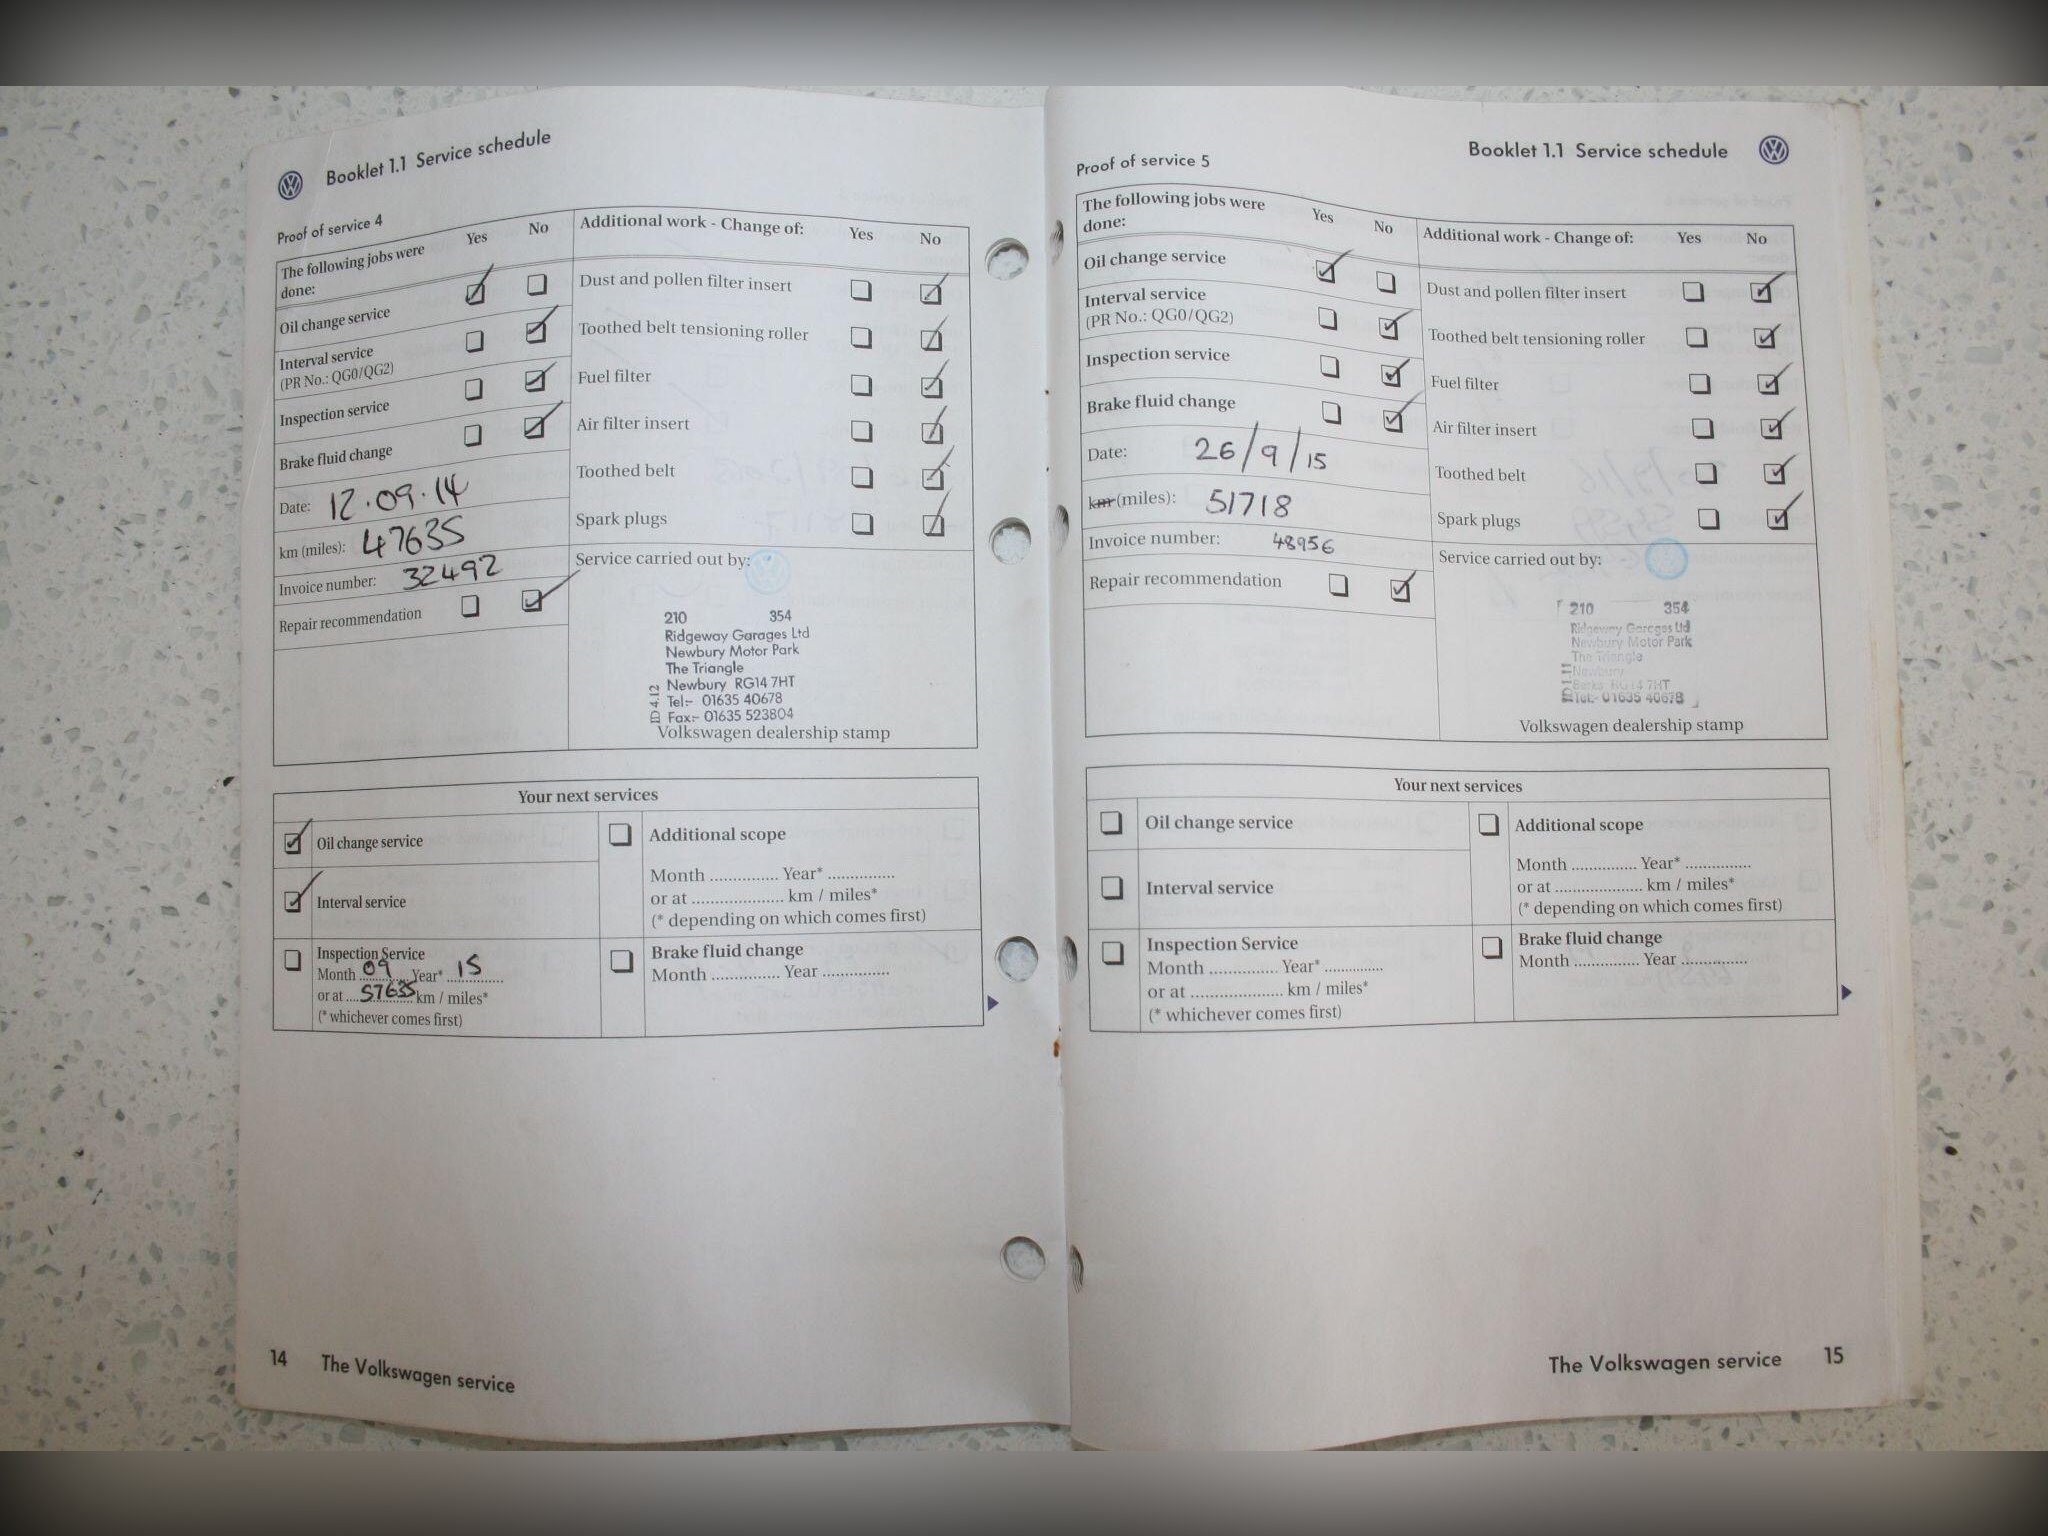 Booklet 1.1 Service schedule
Proof of service 4
The following jobs were done: Yes No
Oil change service
Interval service
(PR No.: QG0/QG2)
Inspection service
Brake fluid change
Date: 12.09.14
km (miles): 47635
Invoice number: 32492
Repair recommendation
Additional work - Change of: Yes No
Dust and pollen filter insert
Toothed belt tensioning roller
Fuel filter
Air filter insert
Toothed belt
Spark plugs
Service carried out by:
210 354
Ridgeway Garages Ltd
Newbury Motor Park
The Triangle
Newbury RG14 7HT
Tel:- 01635 40678
Fax:- 01635 523804
ID 4.12
Volkswagen dealership stamp
Your next services
Oil change service
Interval service
Inspection Service
Month 09 Year* 15
or at 57635 km / miles*
(* whichever comes first)
Additional scope
Month .............. Year* ..............
or at .................... km / miles*
(* depending on which comes first)
Brake fluid change
Month .............. Year ..............
14 The Volkswagen service
Booklet 1.1 Service schedule
Proof of service 5
The following jobs were done: Yes No
Oil change service
Interval service
(PR No.: QG0/QG2)
Inspection service
Brake fluid change
Date: 26/9/15
km (miles): 51718
Invoice number: 48956
Repair recommendation
Additional work - Change of: Yes No
Dust and pollen filter insert
Toothed belt tensioning roller
Fuel filter
Air filter insert
Toothed belt
Spark plugs
Service carried out by:
210 354
Ridgeway Garages Ltd
Newbury Motor Park
The Triangle
Newbury
Berks RG14 7HT
Tel:- 01635 40678
Volkswagen dealership stamp
Your next services
Oil change service
Interval service
Inspection Service
Month .............. Year* ..............
or at .................... km / miles*
(* whichever comes first)
Additional scope
Month .............. Year* ..............
or at .................... km / miles*
(* depending on which comes first)
Brake fluid change
Month .............. Year ..............
The Volkswagen service 15